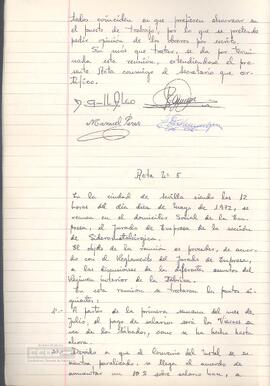 todos coinciden en que prefieren almorzar en
el puesto de trabajo, por lo que se pretende
pedir opinión de los obreros por escrito.
Sin más que tratar, se da por termi-
nada esta reunión, extendiéndose el pre-
sente Acta conmigo el Secretario que cer-
tifico.
Manuel Pérez
Acta Nº 5
En la ciudad de Sevilla siendo las 12
horas del día diez de Mayo de 1972, se
reunen en el domicilio Social de la Em-
presa, el Jurado de Empresa de la sección
de Siderometalúrgica.
El objeto de la reunión es proceder, de acuer-
do con el Reglamento del Jurado de Empresa,
a las discusiones de los diferentes asuntos del
Régimen interior de la Fábrica.
En esta reunión se trataron los puntos si-
guientes:
1º.- A partir de la primera semana del mes de
Julio, el pago de salarios será los Viernes en
vez de los Sábados, como se ha hecho hasta
ahora.
2º.- Debido a que el Convenio del metal se en-
cuentra paralizado, se llega al acuerdo de
aumentar un 10% sobre salario base, a